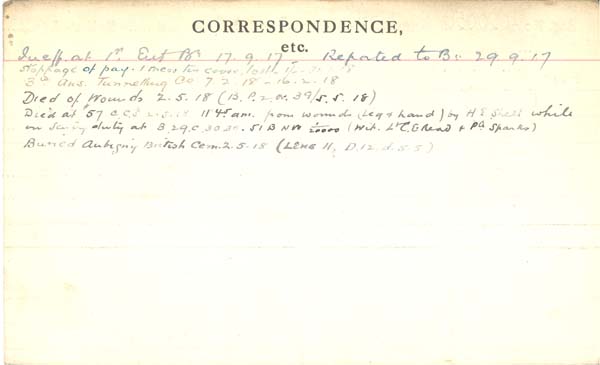 CORRESPONDENCE,
etc.
Ineff. at 17.9.17 Reported to Bn 29.9.17
Stoppage of pay. 1 mess tin cover
3rd Aus. Tunnelling Co 7.2.18 - 16.2.18
Died of Wounds 2.5.18 (B.P.2. 39/5.5.18)
Died at 57 C.C.S 2.5.18 11 45 am. from wounds (leg & hand) by H.E Shell while
on duty at B.29.c.30.30. 51B NW 1/20000 (Wit. L/C E Read & Pte Sparks)
Buried Aubigny British Cem. 2.5.18 (LENS 11, D.12.d.5.5)